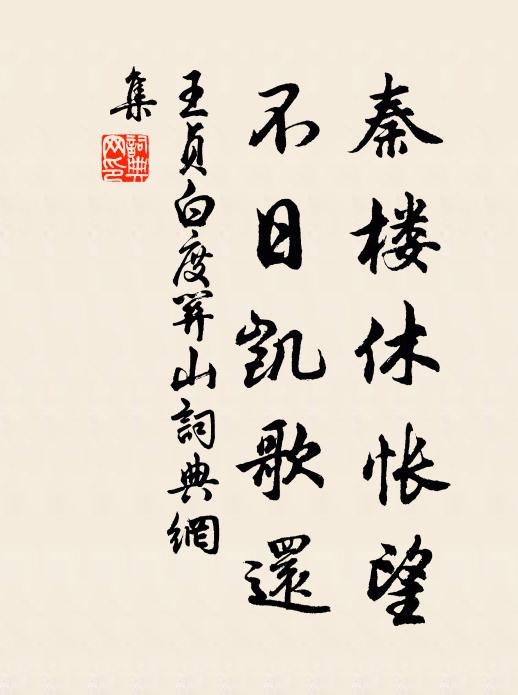 秦楼休怅望
不日凯歌還
王贞白度關山詞典網
集
詞典
网印